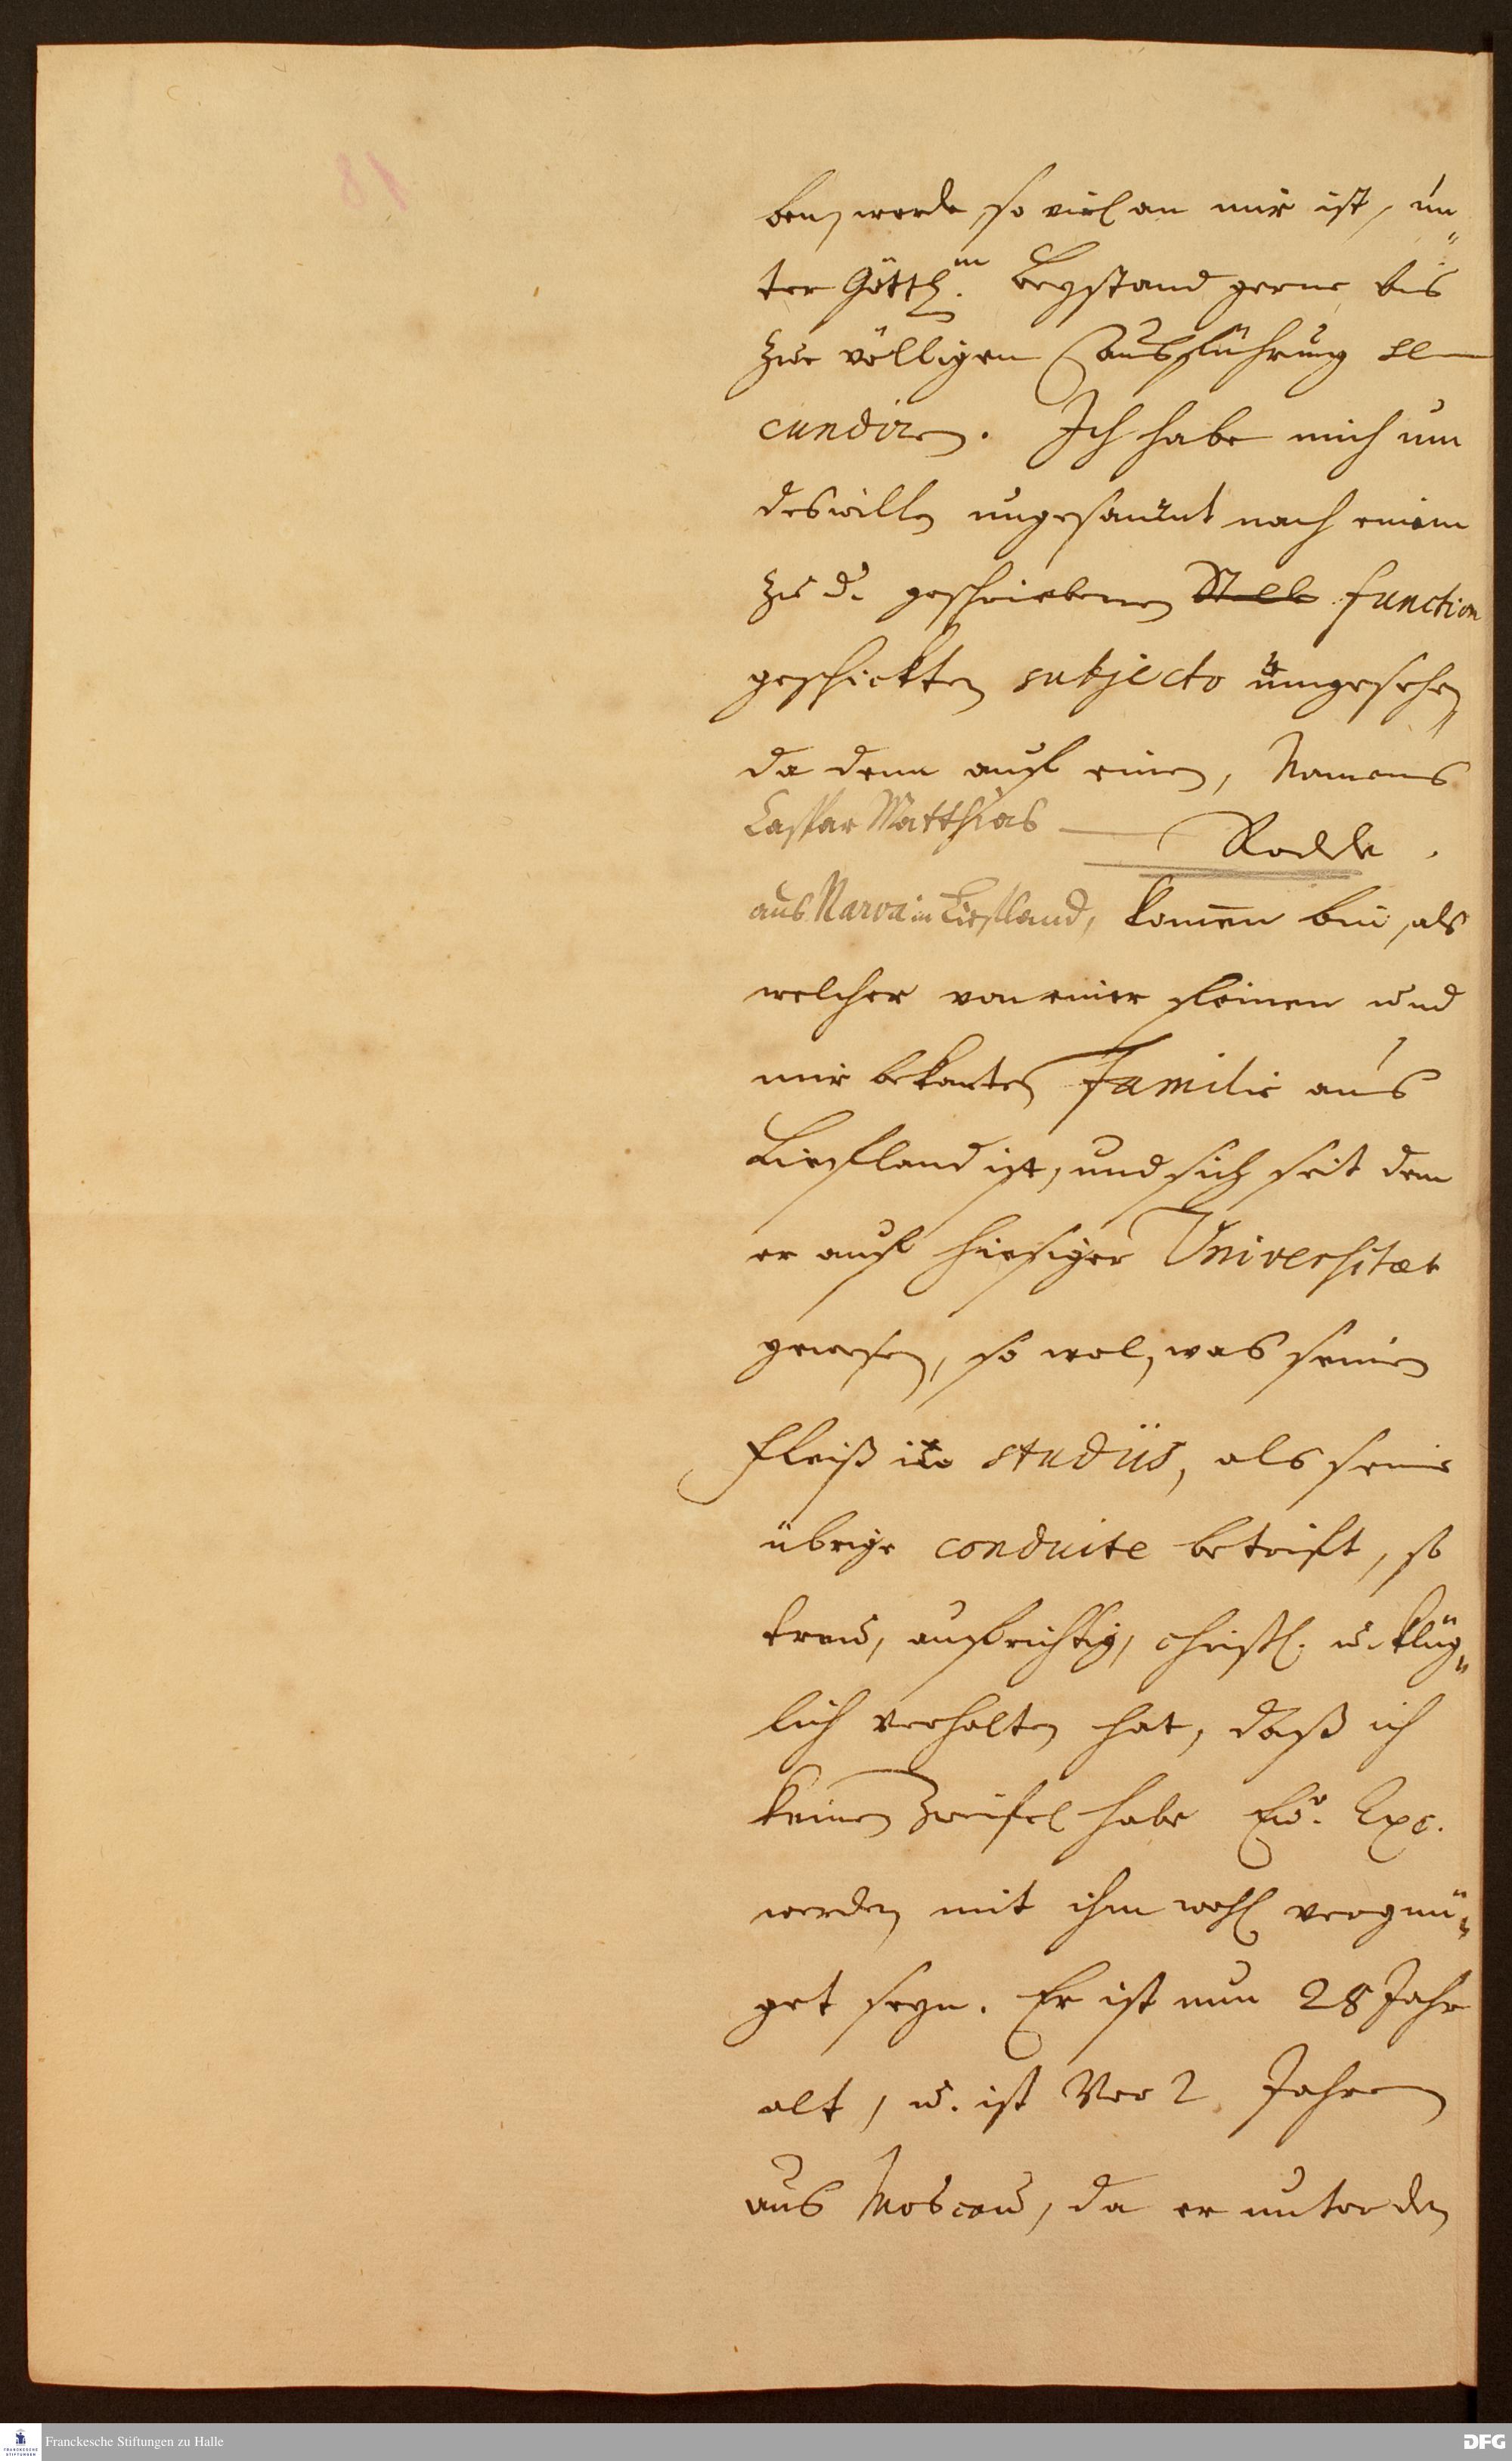 ben, werde, so viel an mir ist, un„
ter Göttl.m Beystand gerne bis
zur völligen Ausführung se¬
cundiren. Ich habe mich um
deswillen ungesäumt nach einem
zu d. geschriebenen Stelle function
geschickten subjecto umgesehen,
da denn auf einen, Namens
Caspar Matthias — Rodde.
aus Narva in Liefland, kommen bin, als
welcher von einer feinen und
mir bekanten Familie aus
Liefland ist, und sich seit dem
er auf hiesiger Universitæt
gewesen, so wol, was seinen
Fleiß in studiis, als seine
übrige conduite betrift, so
treu, aufrichtig, christl. u. klüg„
lich verhalten hat, daß ich
keinen Zweifel habe Ew. Exc.
werden mit ihm wohl vergnü„
get seyn. Er ist nun 28 Jahr
alt, u. ist Vor 2 Jahren
aus Moscau, da er unter den
Franckesche Stiftungen zu Halle
FRANCKESCHE STIFTUNGEN
DFG